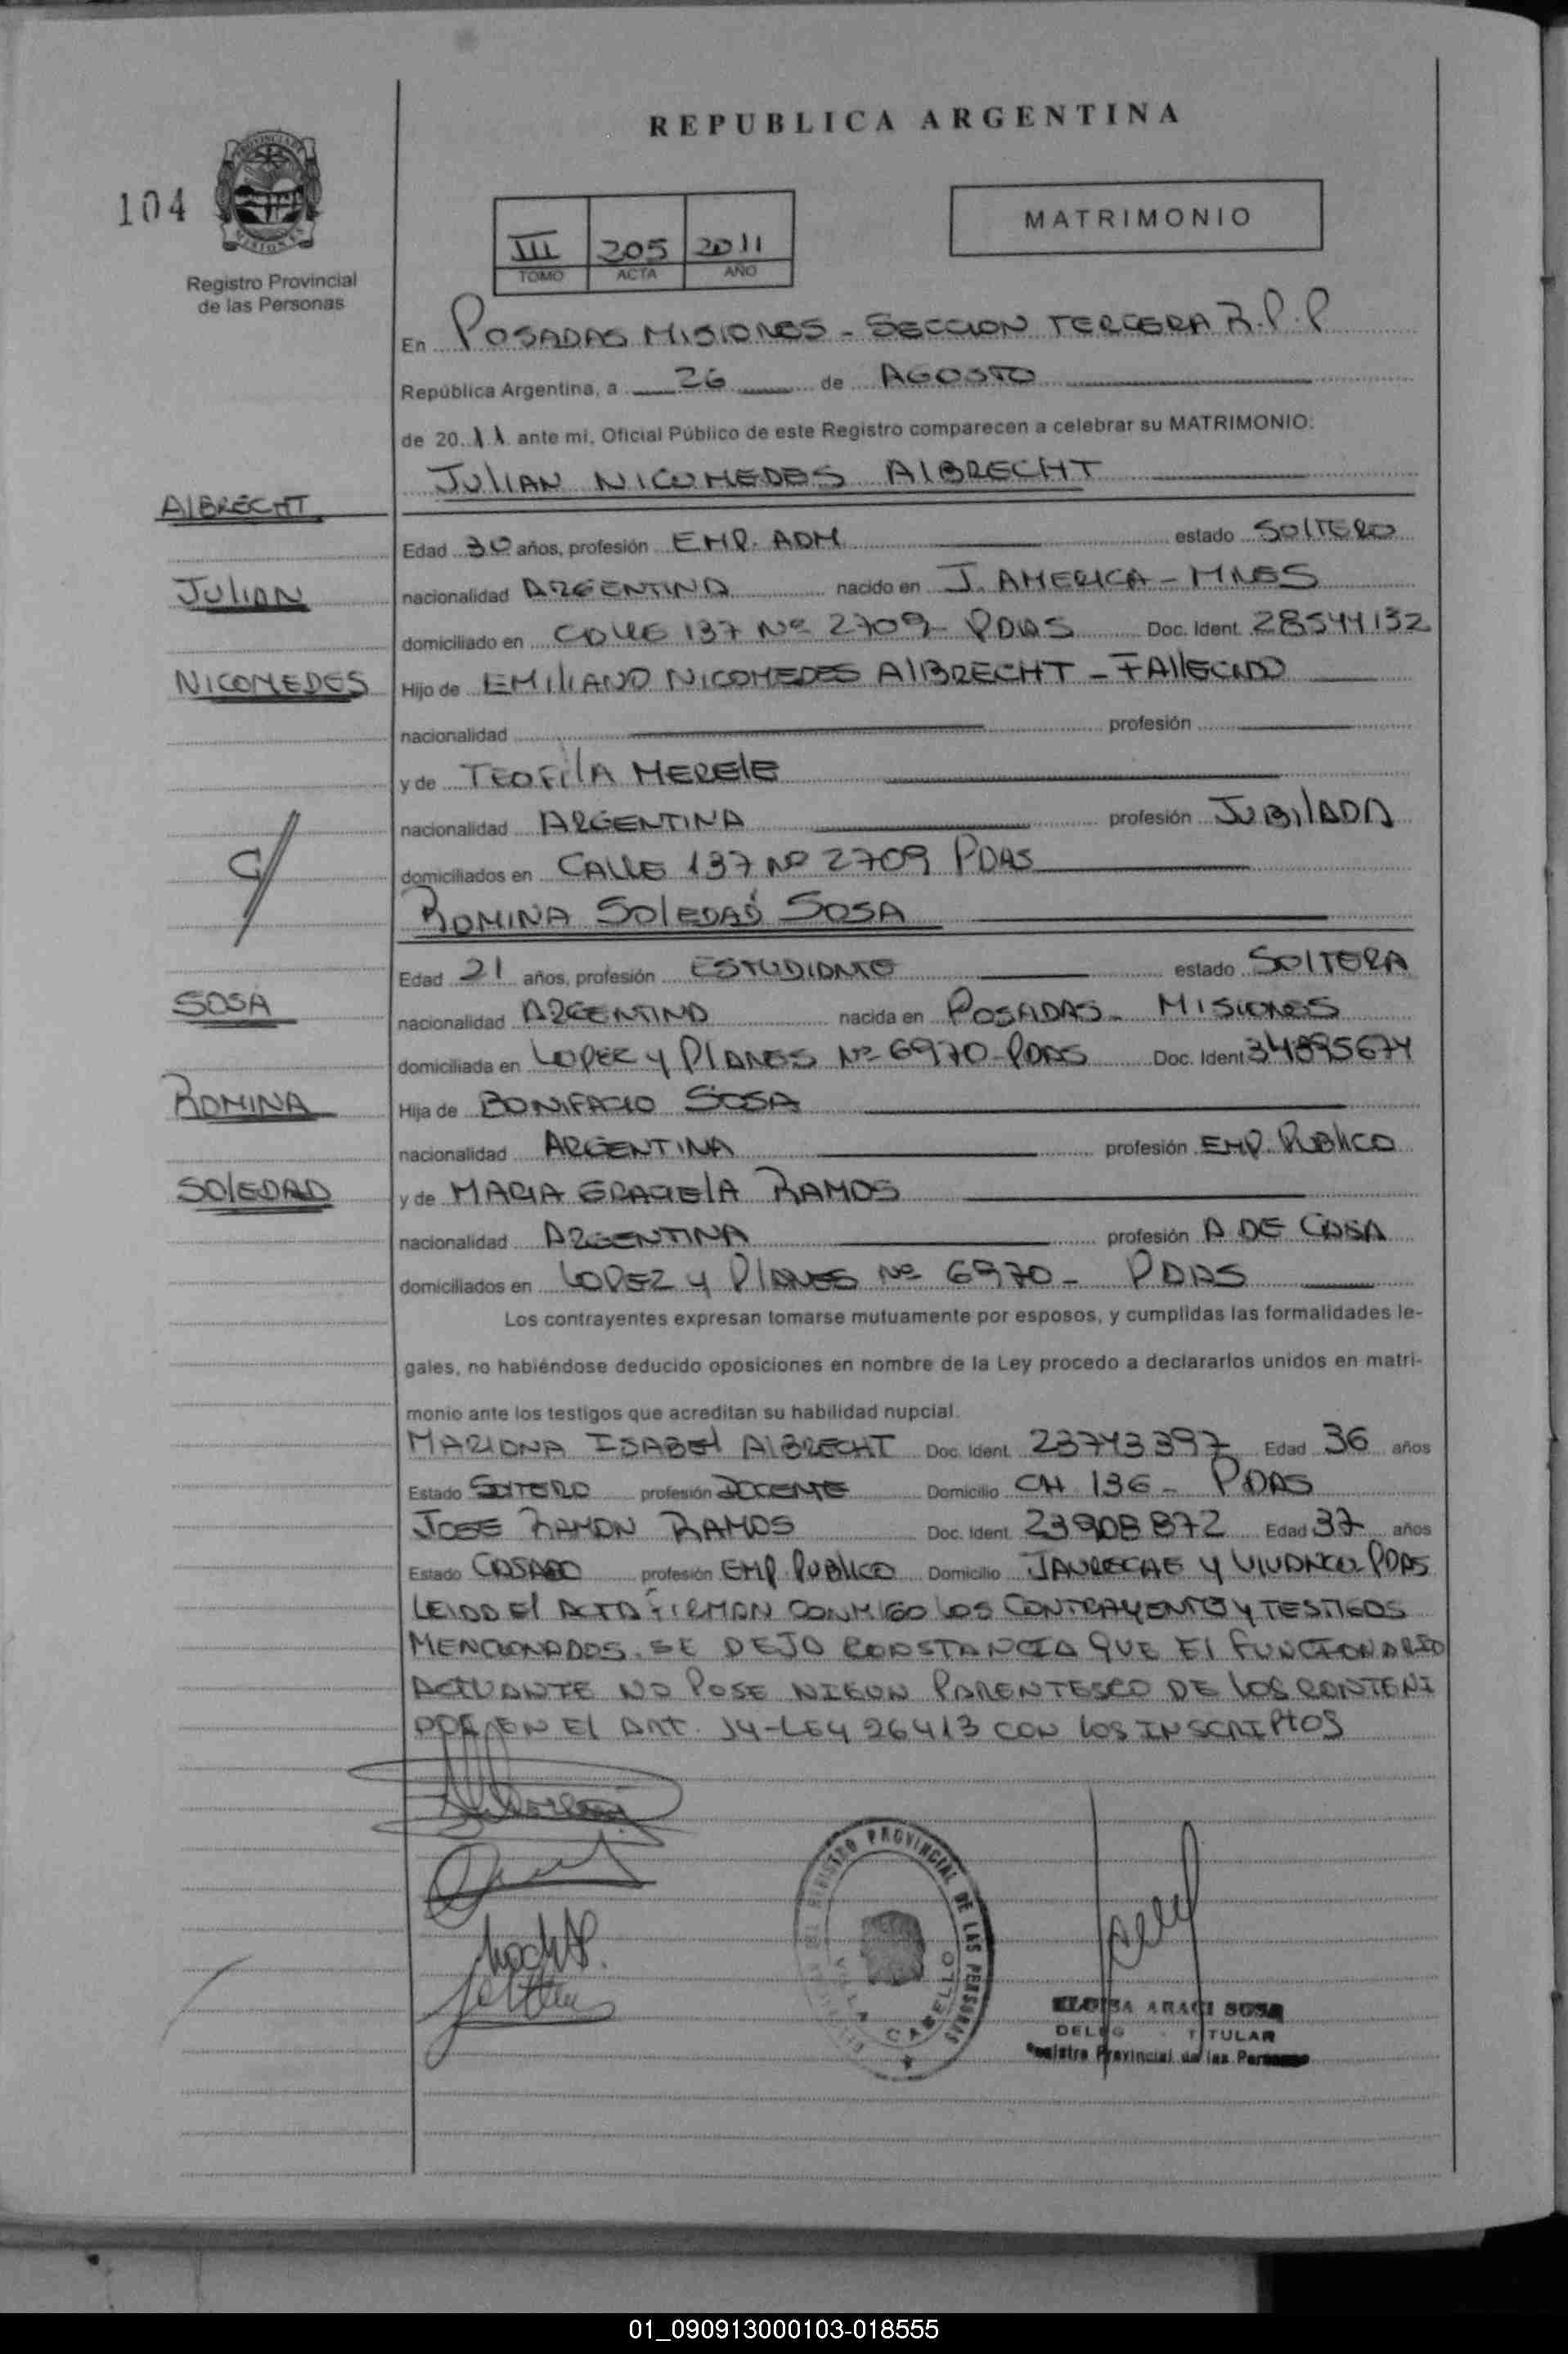 REPUBLICA ARGENTINA
104
MATRIMONIO
III 205 2011
TOMO ACTA AÑO
Registro Provincial
de las Personas
En POSADAS MISIONES - SECCION TERCERA R.P.P
República Argentina, a 26 de AGOSTO
de 2011 ante mi, Oficial Público de este Registro comparecen a celebrar su MATRIMONIO:
JULIAN NICOMEDES ALBRECHT
ALBRECHT
Edad 30 años, profesión EMP. ADM estado SOLTERO
JULIAN
nacionalidad ARGENTINA nacido en J. AMERICA - MNES
domiciliado en CALLE 137 Nº 2709 - PDAS Doc. Ident. 28544132
NICOMEDES
Hijo de EMILIANO NICOMEDES ALBRECHT - FALLECIDO
nacionalidad profesión
y de TEOFILA MERELE
nacionalidad ARGENTINA profesión JUBILADA
domiciliados en CALLE 137 Nº 2709 PDAS
C/
ROMINA SOLEDAD SOSA
Edad 21 años, profesión ESTUDIANTE estado SOLTERA
SOSA
nacionalidad ARGENTINA nacida en POSADAS - MISIONES
domiciliada en LOPEZ y PLANES Nº 6970 - PDAS Doc. Ident 34895674
ROMINA
Hija de BONIFACIO SOSA
nacionalidad ARGENTINA profesión EMP. PUBLICO
SOLEDAD
y de MARIA GRACIELA RAMOS
nacionalidad ARGENTINA profesión A DE CASA
domiciliados en LOPEZ y PLANES Nº 6970 - PDAS
Los contrayentes expresan tomarse mutuamente por esposos, y cumplidas las formalidades le-
gales, no habiéndose deducido oposiciones en nombre de la Ley procedo a declararlos unidos en matri-
monio ante los testigos que acreditan su habilidad nupcial.
MARIANA ISABEL ALBRECHT Doc. Ident. 23743397 Edad 36 años
Estado SOLTERO profesión DOCENTE Domicilio CH 136 - PDAS
JOSE RAMON RAMOS Doc. Ident. 23908872 Edad 37 años
Estado CASADO profesión EMP. PUBLICO Domicilio JAURECHE Y VIVANCO - PDAS
LEIDA El ACTA FIRMAN CONMIGO LOS CONTRAYENTES y TESTIGOS
MENCIONADOS. SE DEJA CONSTANCIA QUE El FUNCIONARIO
ACTUANTE NO POSE NIGUN PARENTESCO DE LOS CONTENI
DOS EN El ART. 14-LEY 26413 CON LOS INSCRIPTOS
REGISTRO PROVINCIAL DE LAS PERSONAS
VILLA CABELLO
ELOISA ARACI SOSA
TITULAR
Registro Provincial de las Personas
01_090913000103-018555